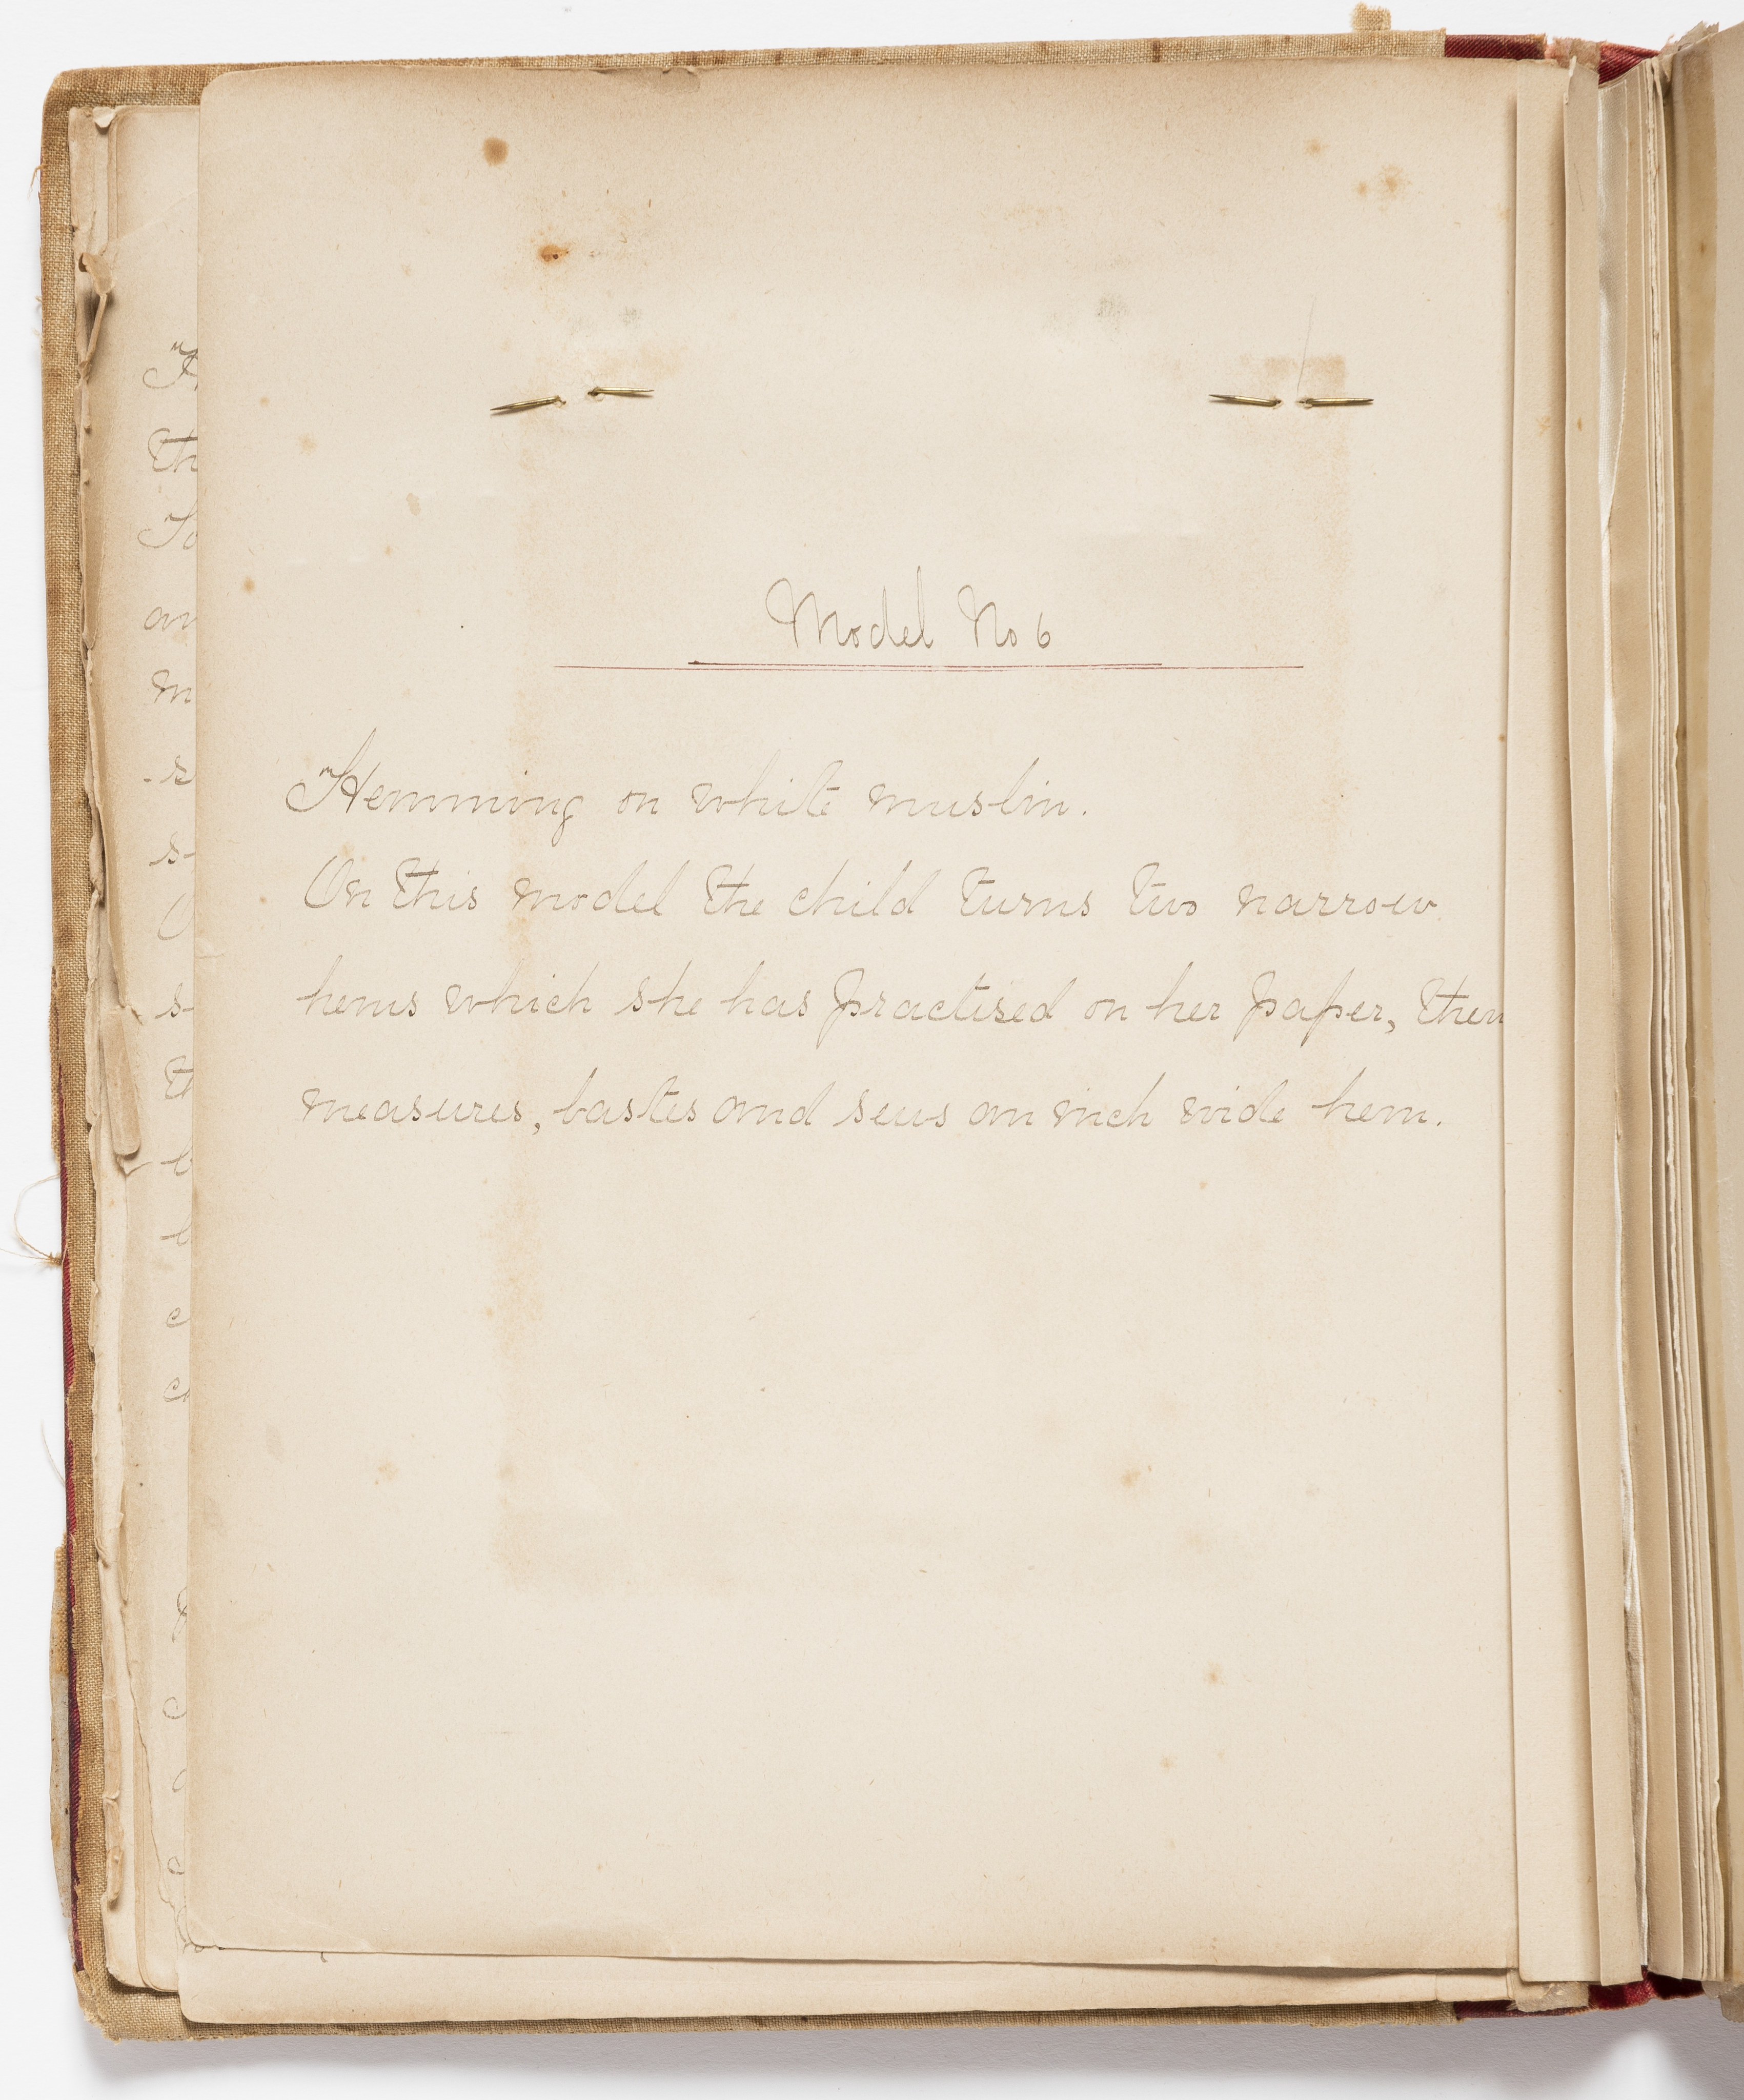 Model No 6
Hemming on white muslin.
On this model the child turns two narrow
hems which she has practised on her paper, then
measures, bastes and sews an inch wide hem.